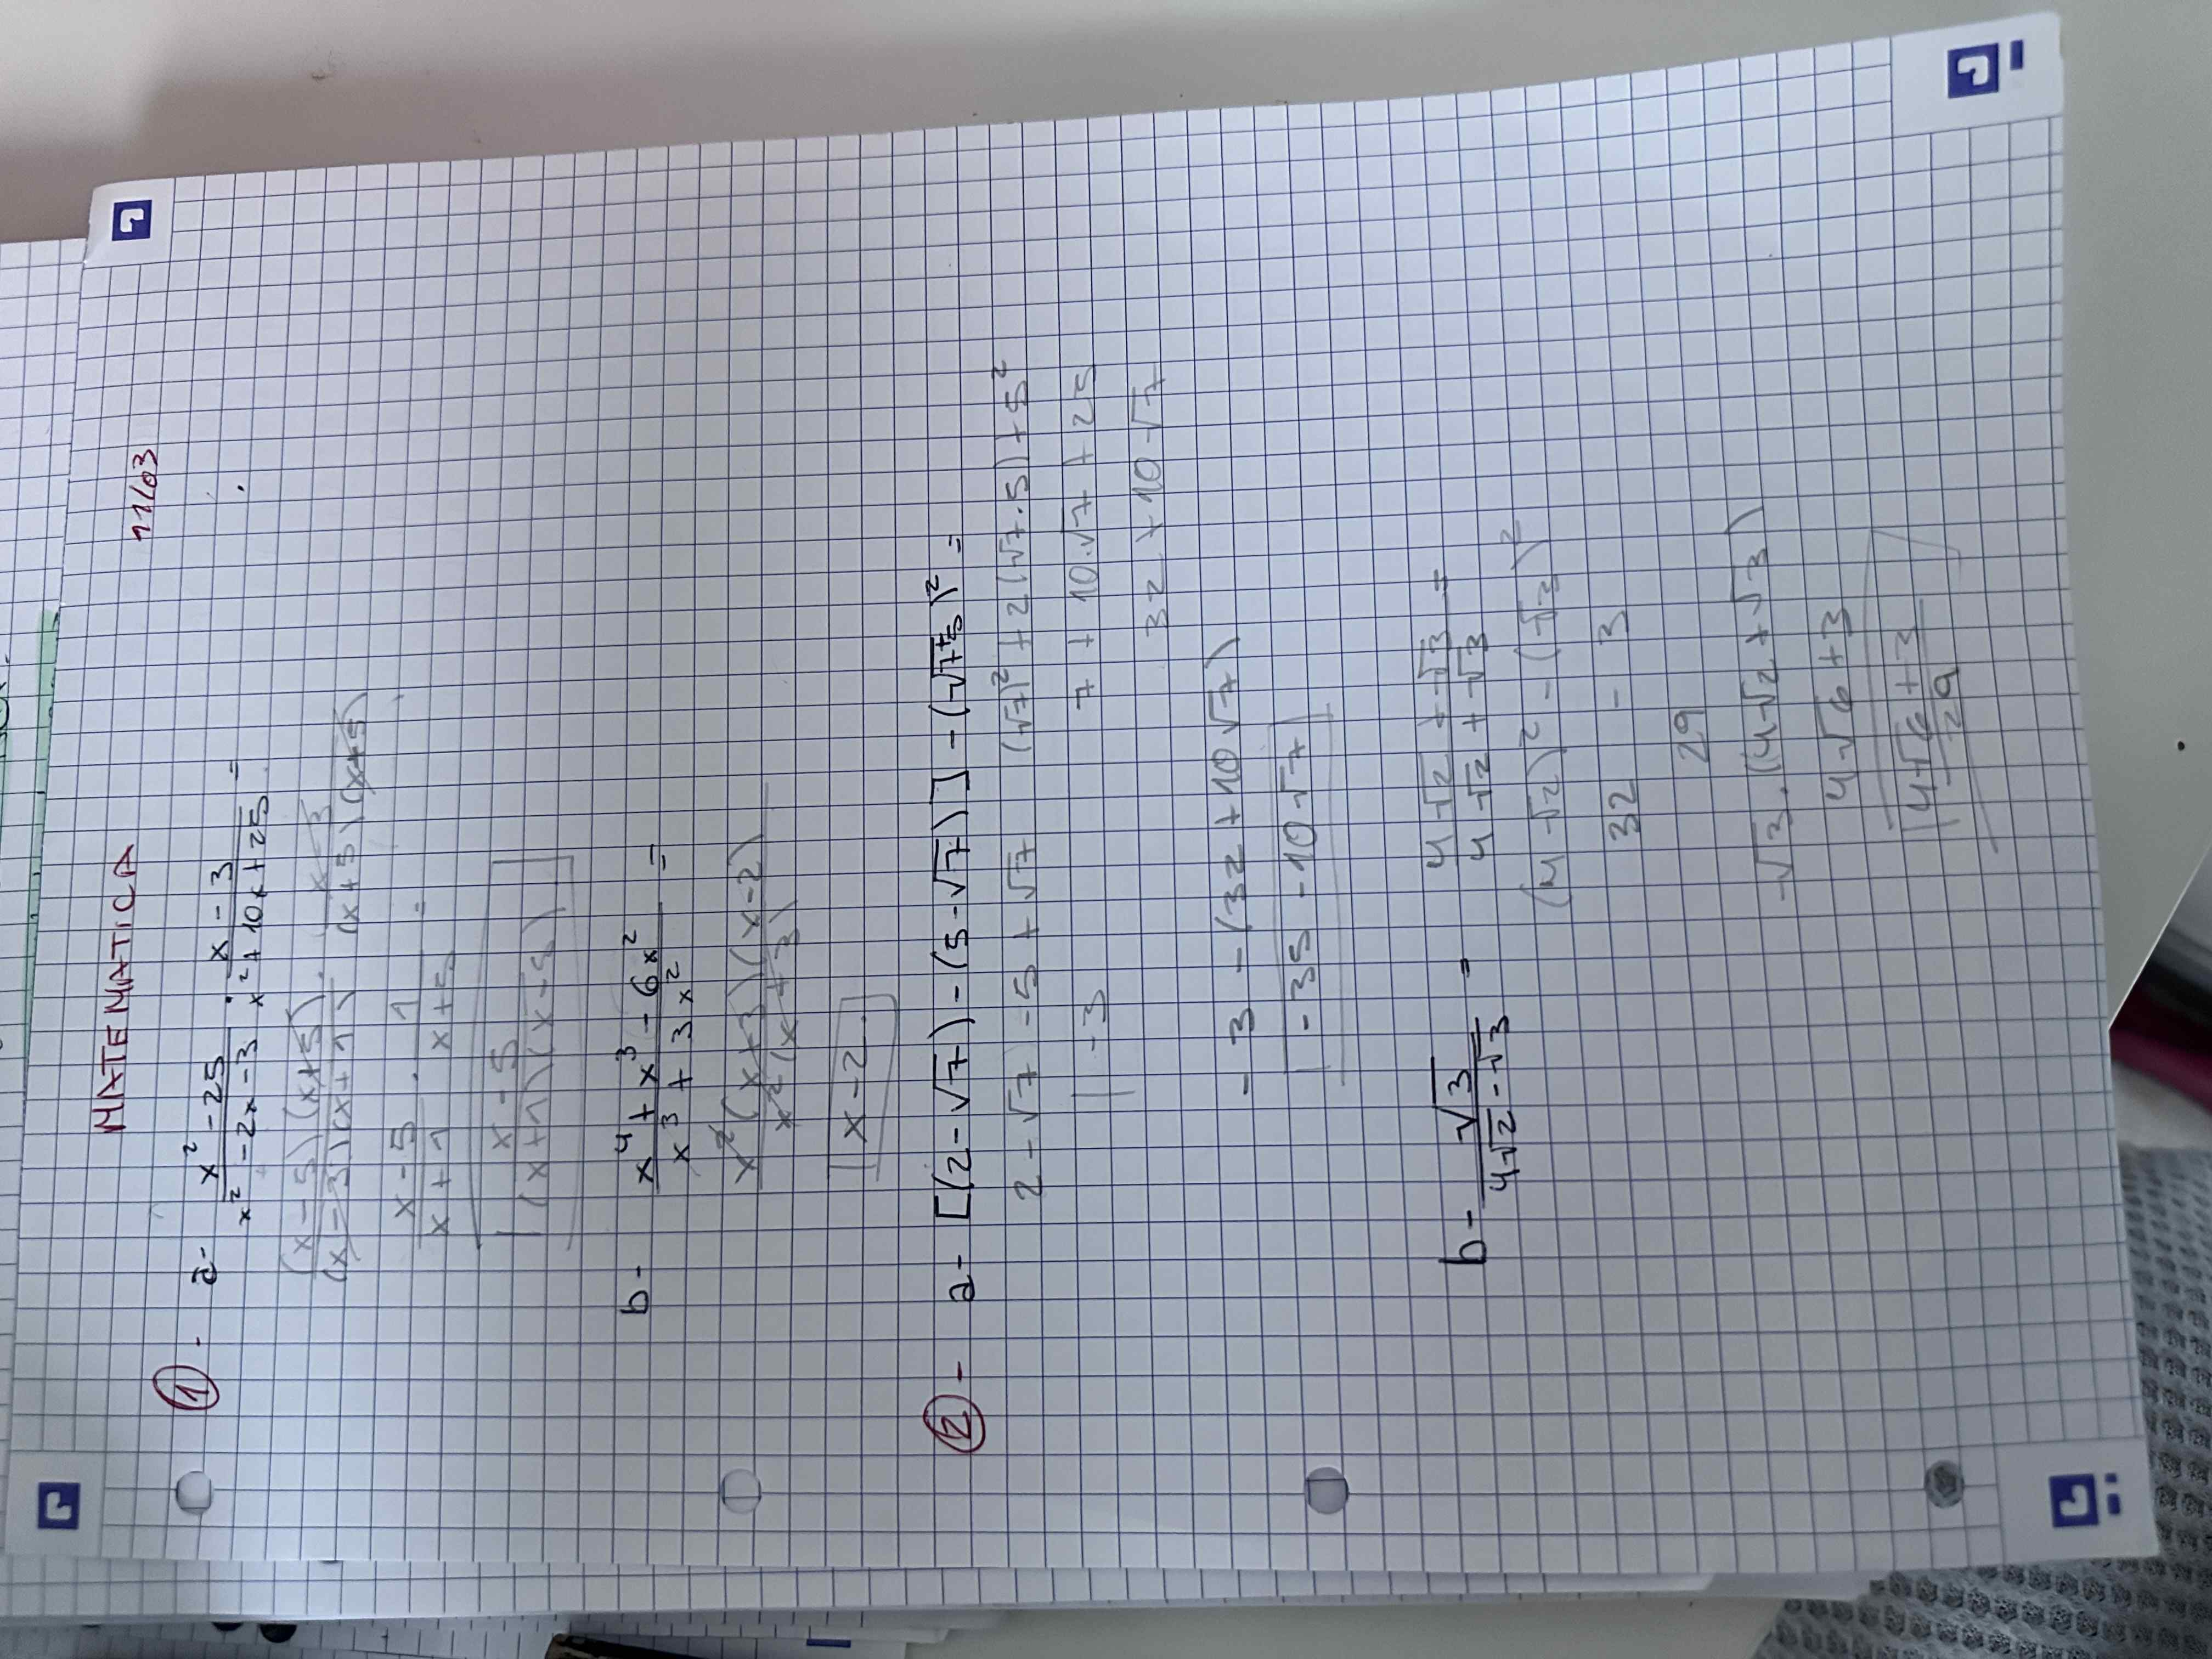 MATEMATICA 11/03
① - a- x² - 25 / x² - 2x - 3 · x - 3 / x² + 10x + 25 =
(x - 5)(x + 5) / (x - 3)(x + 1) · x - 3 / (x + 5)(x + 5)
x - 5 / x + 1 · 1 / x + 5 =
x - 5 / (x + 1)(x - 5)
b- x⁴ + x³ - 6x² / x³ + 3x² =
x²(x + 3)(x - 2) / x²(x + 3)
x - 2
② - a- [(2 - √7) - (5 - √7)] - (√7 + 5)² =
2 - √7 - 5 + √7 (√7)² + 2(√7 · 5) + 5²
- 3 7 + 10√7 + 25
32 + 10√7
- 3 - (32 + 10√7)
- 35 - 10√7
b- √3 / 4√2 - √3 = 4√2 + √3 / 4√2 + √3 =
(4√2)² - (√3)²
32 - 3
29
√3 · (4√2 + √3)
4√6 + 3
4√6 + 3 / 29